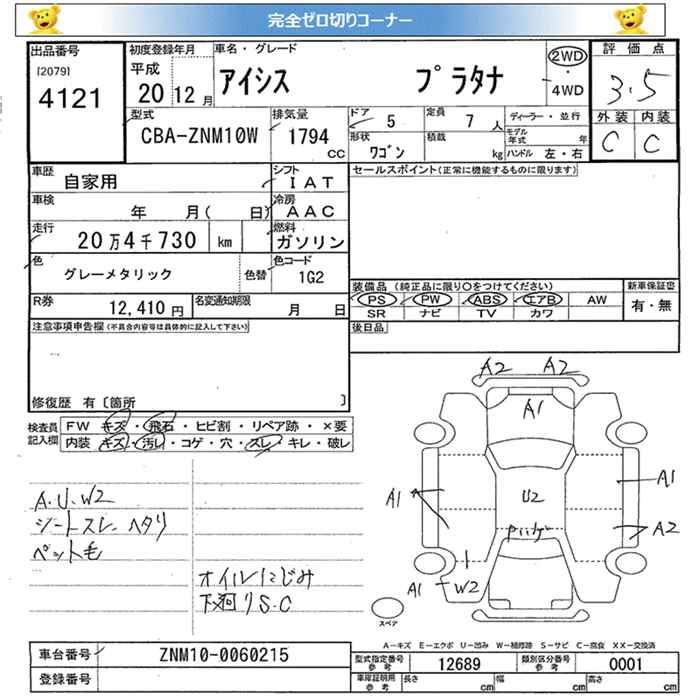 完全ゼロ切りコーナー
出品番号
[2079]
4121
初度登録年月
平成
20 12 月
車名・グレード
アイシス プラタナ
2WD
・
4WD
評価点
3.5
外装 内装
C C
型式
CBA-ZNM10W
排気量
1794
CC
ドア
5
定員
7 人
形状
ワゴン
積載
kg
ディーラー・並行
モデル年式 年
ハンドル 左・右
車歴
自家用
シフト
IAT
車検
年 月( 日)
冷房
AAC
走行
20万4千730 km
燃料
ガソリン
色
グレーメタリック
色替
色コード
1G2
R券
12,410 円
名変通知期限
月 日
セールスポイント(正常に機能するものに限ります)
装備品 (純正品に限り○をつけてください)
PS PW ABS エアB AW
SR ナビ TV カワ
新車保証書
有・無
後日品
注意事項申告欄(不具合内容等は具体的に記入して下さい)
修復歴 有〔箇所 〕
検査員記入欄
FW キズ・飛石・ヒビ割・リペア跡・×要
内装 キズ・汚れ・コゲ・穴・スレ・キレ・破レ
A.U.W2
シートスレ ヘタリ
ペット毛
オイルにじみ
下廻りS.C
A2 A2
A1
A1
A1
U2
A2
A1
W2
スペア
A-キズ E-エクボ U-凹み W-補修跡 S-サビ C-腐食 XX-交換済
車台番号
ZNM10-0060215
登録番号
型式指定番号
参考
12689
類別区分番号
参考
0001
車庫証明用
参考
長さ cm
幅 cm
高さ cm